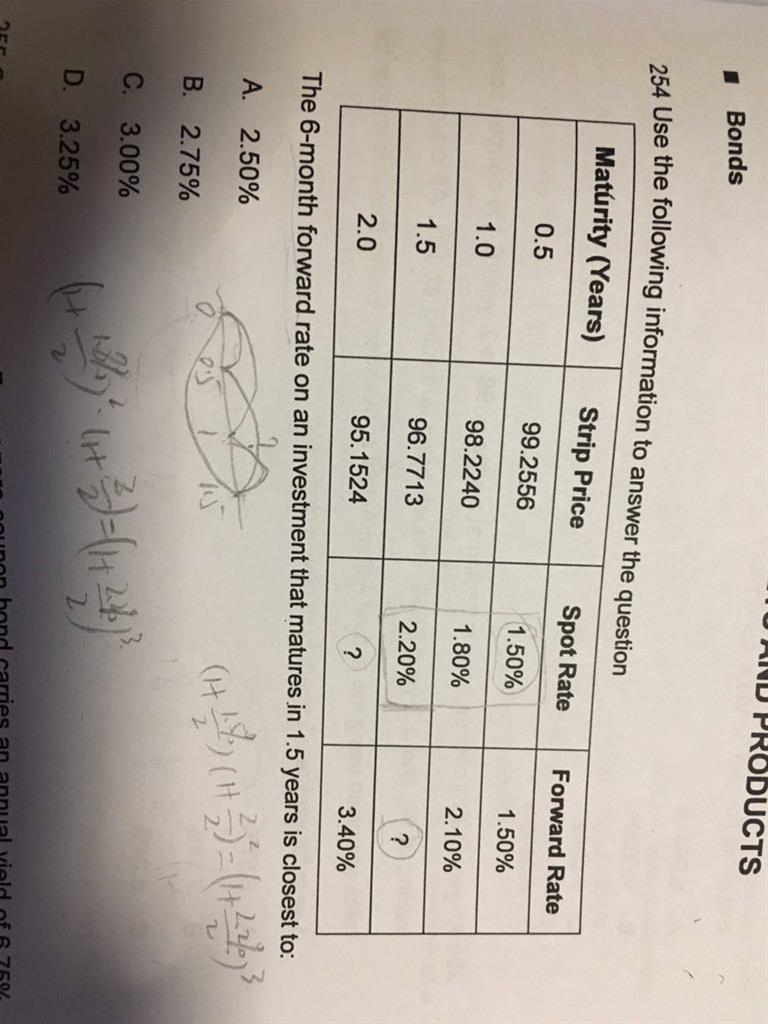 AND PRODUCTS
■ Bonds
254 Use the following information to answer the question
Maturity (Years) Strip Price Spot Rate Forward Rate
0.5 99.2556 1.50% 1.50%
1.0 98.2240 1.80% 2.10%
1.5 96.7713 2.20% ?
2.0 95.1524 ? 3.40%
The 6-month forward rate on an investment that matures in 1.5 years is closest to:
A. 2.50%
B. 2.75%
C. 3.00%
D. 3.25%
0 0.5 1 1.5
?
(1+1.8%/2)² · (1+?/2) = (1+2.2%/2)³
(1+1.5%/2)(1+?/2)² = (1+2.2%/2)³
coupon bond carries an annual yield of 6.75%